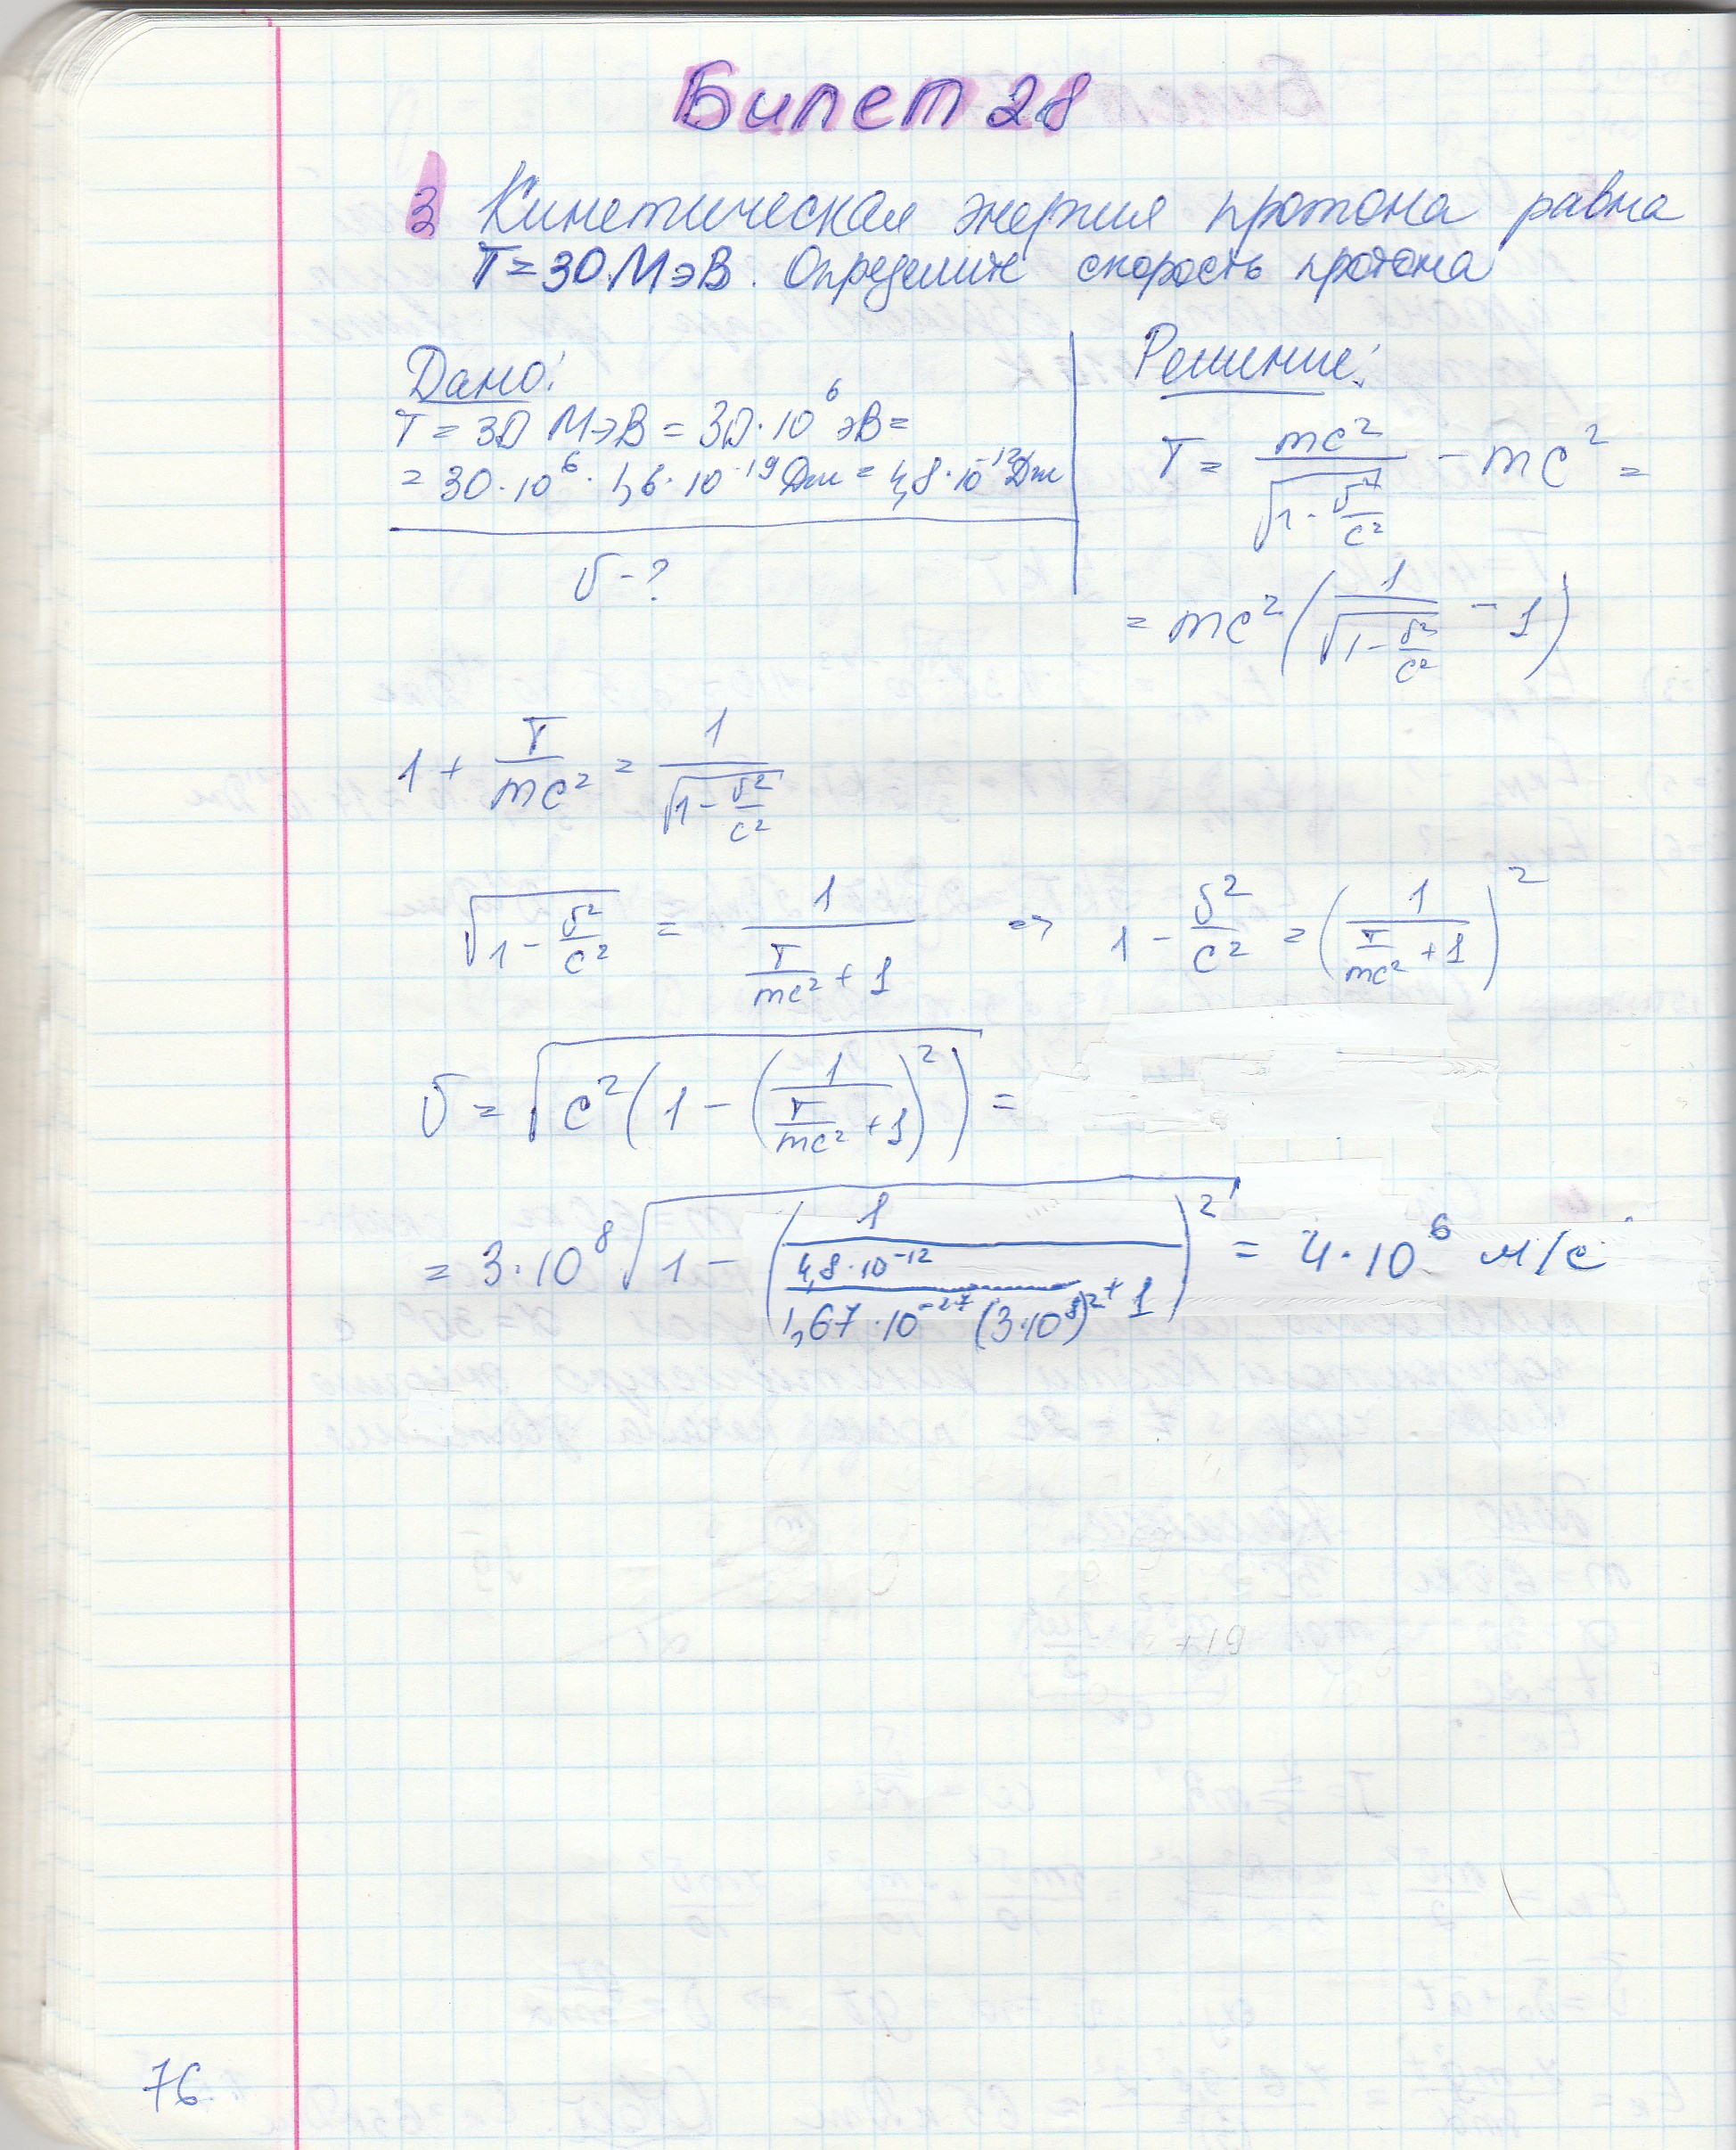 Билет 28
3 Кинетическая энергия протона равна
T = 30 МэВ. Определить скорость протона
Дано:
T = 30 МэВ = 30·10⁶ эВ =
= 30·10⁶·1,6·10⁻¹⁹ Дж = 4,8·10⁻¹² Дж
υ - ?
Решение:
T = mc²/√(1 - υ²/c²) - mc² =
= mc²(1/√(1 - υ²/c²) - 1)
1 + T/mc² = 1/√(1 - υ²/c²)
√(1 - υ²/c²) = 1/(T/mc² + 1) => 1 - υ²/c² = (1/(T/mc² + 1))²
υ = √(c²(1 - (1/(T/mc² + 1))²)) =
= 3·10⁸ √(1 - (1/(4,8·10⁻¹²/(1,67·10⁻²⁷(3·10⁸)²) + 1))²) = 4·10⁶ м/с
76